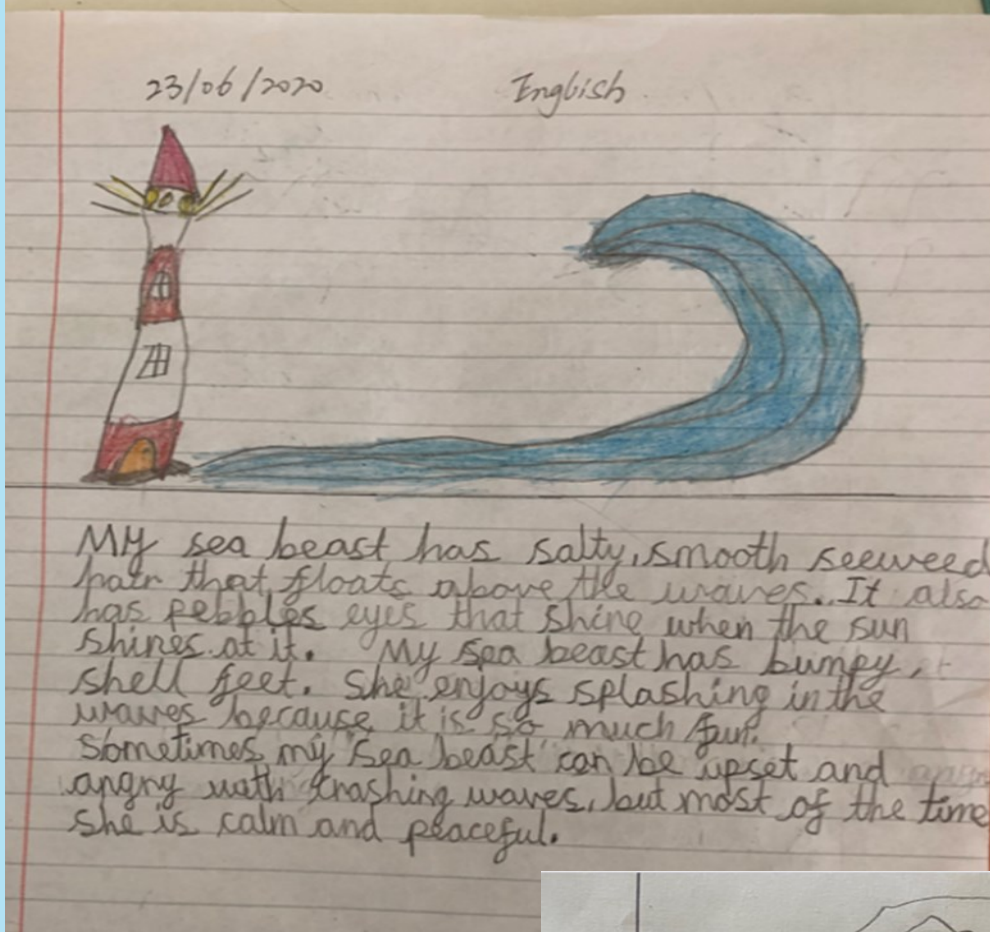 23/06/2020 English
My sea beast has salty, smooth seeweed
hair that floats above the waves. It also
has pebbles eyes that shine when the sun
shines at it. My sea beast has bumpy,
shell feet. She enjoys splashing in the
waves because it is so much fun.
Sometimes my sea beast can be upset and
angry with crashing waves, but most of the time
she is calm and peaceful.